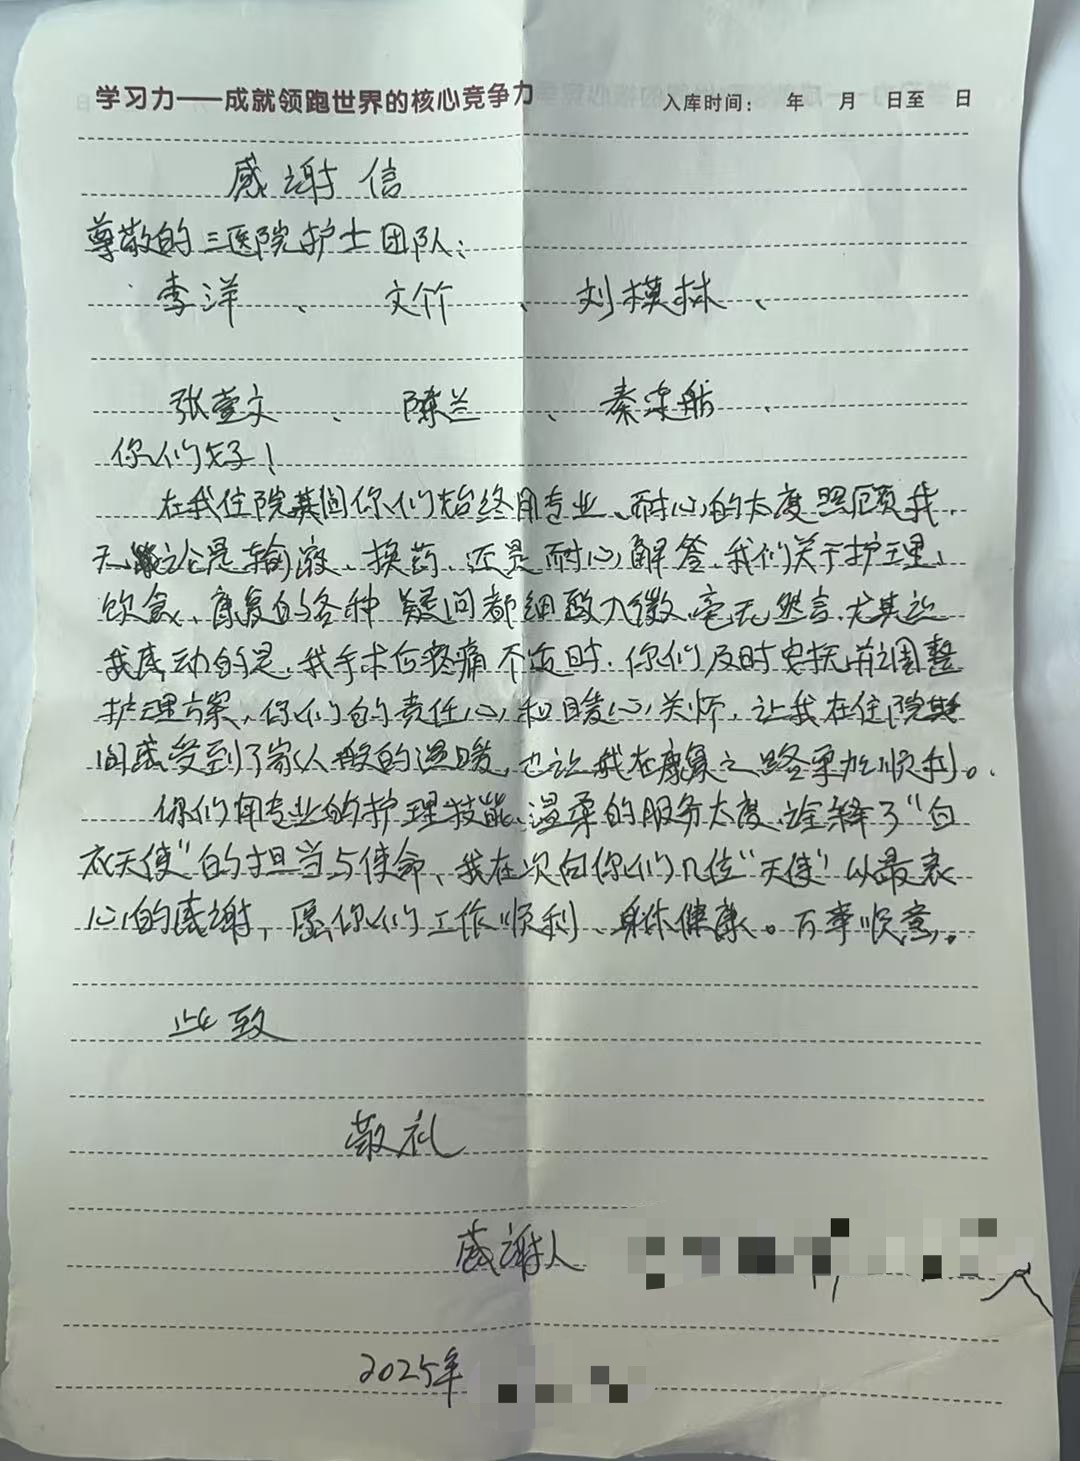 学习力——成就领跑世界的核心竞争力 入库时间： 年 月 日至 日
感谢信
尊敬的三医院护士团队：
李洋、 文竹、 刘模林、
张萱文、 陈兰、 秦定舫、
你们好！
在我住院其间你们始终用专业、耐心的太度照顾我，
无论是输液、换药、还是耐心解答，我们关于护理、
饮食、康复的各种疑问都细致入微，毫无怨言，尤其让
我感动的是，我手术后疼痛不适时，你们及时安抚并调整
护理方案，你们的责任心和暖心关怀，让我在住院其
间感受到了家人般的温暖，也让我在康复之路更加顺利。
你们用专业的护理技能、温柔的服务太度，诠释了“白
衣天使”的担当与使命，我在次向你们几位“天使”以最衷
心的感谢，愿你们工作顺利、身体健康。万事顺意。
此致
敬礼
感谢人
2025年